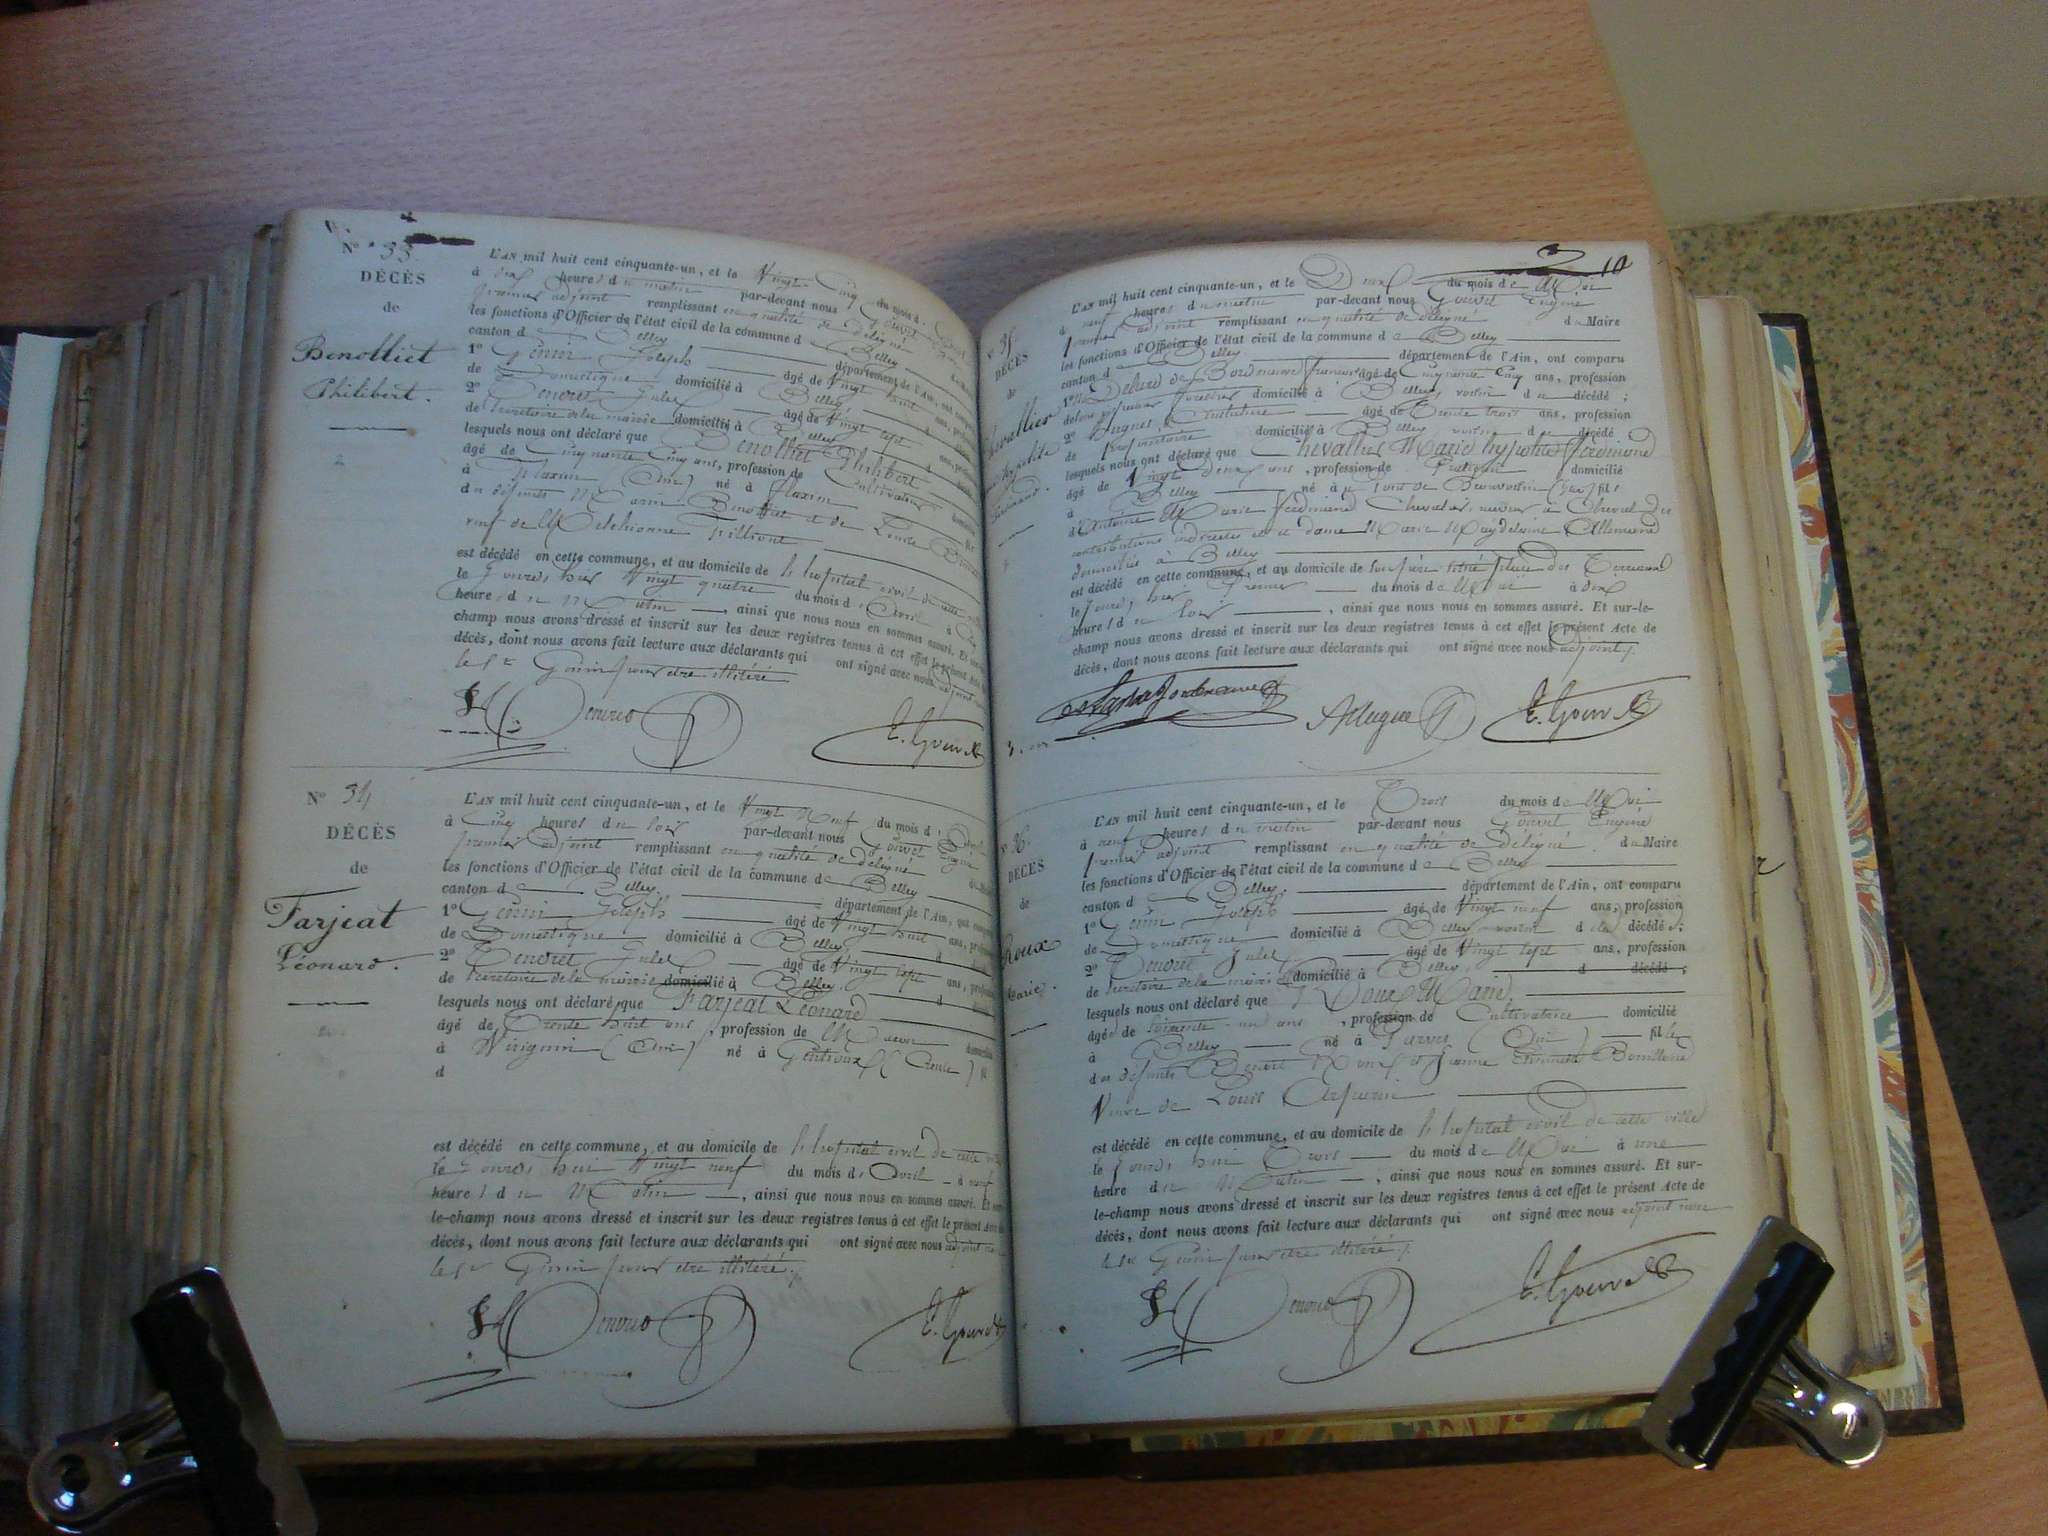 N° 33
DÉCÈS
de
Benolliet
Philibert.
L'AN mil huit cent cinquante-un, et le Vingt Cinq du mois d
à dix heures du matin par-devant nous Gouvet
premier adjoint remplissant en qualité de Délégué
les fonctions d'Officier de l'état civil de la commune de Belley
canton de Belley département de l'Ain, ont
1° Génin Joseph âgé de Vingt huit ans,
de Domestique domicilié à Belley
2° Tenvret Jules âgé de Vingt sept ans,
de Secrétaire de la mairie domicilié à Belley
lesquels nous ont déclaré que Benolliet Philibert
âgé de Cinquante Cinq ans, profession de Cultivateur
à Flaxieu (Ain) né à Flaxieu
du défunts Marin Benolliet et de Louise
veuf de Melchionne
est décédé en cette commune, et au domicile de l'hopital civil de cette
le jourd'hier Vingt quatre du mois d'Avril à
heures du Matin, ainsi que nous nous en sommes assuré. Et
champ nous avons dressé et inscrit sur les deux registres tenus à cet effet le présent Acte
décès, dont nous avons fait lecture aux déclarants qui ont signé avec nous adjoint
le Sr Génin pour etre illitéré
E. Gouvet
N° 34
DÉCÈS
de
Farjeat
Léonard.
L'AN mil huit cent cinquante-un, et le Vingt Neuf du mois d'Avril
à Cinq heures du soir par-devant nous Gouvet Eugène
premier adjoint remplissant en qualité de délégué
les fonctions d'Officier de l'état civil de la commune de Belley
canton de Belley département de l'Ain, ont
1° Génin Joseph âgé de Vingt huit ans,
de Domestique domicilié à Belley
2° Tenvret Jules âgé de Vingt sept ans,
de Secrétaire de la mairie domicilié à Belley
lesquels nous ont déclaré que Farjeat Léonard
âgé de Trente huit ans, profession de Maçon
à Virignin (Ain) né à (Creuse)
d
est décédé en cette commune, et au domicile de l'hopital civil de cette
le jourd'hui Vingt neuf du mois d'Avril à neuf
heures du Matin, ainsi que nous nous en sommes assuré. Et
le-champ nous avons dressé et inscrit sur les deux registres tenus à cet effet le présent Acte
décès, dont nous avons fait lecture aux déclarants qui ont signé avec nous adjoint
le Sr Génin pour etre illitéré.
E. Gouvet
10
35
DÉCÈS
de
Chevallier
L'AN mil huit cent cinquante-un, et le Deux du mois de Mai
à neuf heures du matin par-devant nous Gouvet Eugène
premier adjoint remplissant en qualité de délégué du Maire
les fonctions d'Officier de l'état civil de la commune de Belley
canton de Belley département de l'Ain, ont comparu
1° âgé de Cinquante Cinq ans, profession
domicilié à Belley voisin du décédé;
2° Huguet âgé de Trente trois ans, profession
de propriétaire domicilié à Belley voisin du décédé
lesquels nous ont déclaré que Chevallier Marie hypolite Ferdinand
âgé de Vingt deux ans, profession de Praticien domicilié
à Belley né à pont de Beauvoisin fils
d'Antoine Marie Ferdinand Chevalier, receveur à Cheval des
contributions indirectes et de dame Marie Magdelaine Allemand
domiciliés à Belley
est décédé en cette commune, et au domicile de son père place des Terreaux
le jourd'hier Premier du mois de Mai à dix
heures du soir, ainsi que nous nous en sommes assuré. Et sur-le-
champ nous avons dressé et inscrit sur les deux registres tenus à cet effet le présent Acte de
décès, dont nous avons fait lecture aux déclarants qui ont signé avec nous adjoint.
E. Gouvet
36
DÉCÈS
de
Roux
Marie.
L'AN mil huit cent cinquante-un, et le Trois du mois de Mai
à neuf heures du matin par-devant nous Gouvet Eugène
premier adjoint remplissant en qualité de Délégué du Maire
les fonctions d'Officier de l'état civil de la commune de Belley
canton de Belley. département de l'Ain, ont comparu
1° Génin Joseph âgé de Vingt neuf ans, profession
de Domestique domicilié à Belley voisin de la décédée;
2° Tenvret Jules âgé de Vingt sept ans, profession
de Secrétaire de la mairie domicilié à Belley d décédé;
lesquels nous ont déclaré que Roux Marie,
âgé de soixante-un ans, profession de Cultivatrice domicilié
à Belley né à Parves (Ain) fille
des défunts Benoit Roux et Jeanne
Veuve de Louis
est décédé en cette commune, et au domicile de l'hopital civil de cette ville
le jourd'hui Trois du mois de Mai à une
heure du Matin, ainsi que nous nous en sommes assuré. Et sur-
le-champ nous avons dressé et inscrit sur les deux registres tenus à cet effet le présent Acte de
décès, dont nous avons fait lecture aux déclarants qui ont signé avec nous adjoint non
le Sr Génin pour etre illitéré.
E. Gouvet